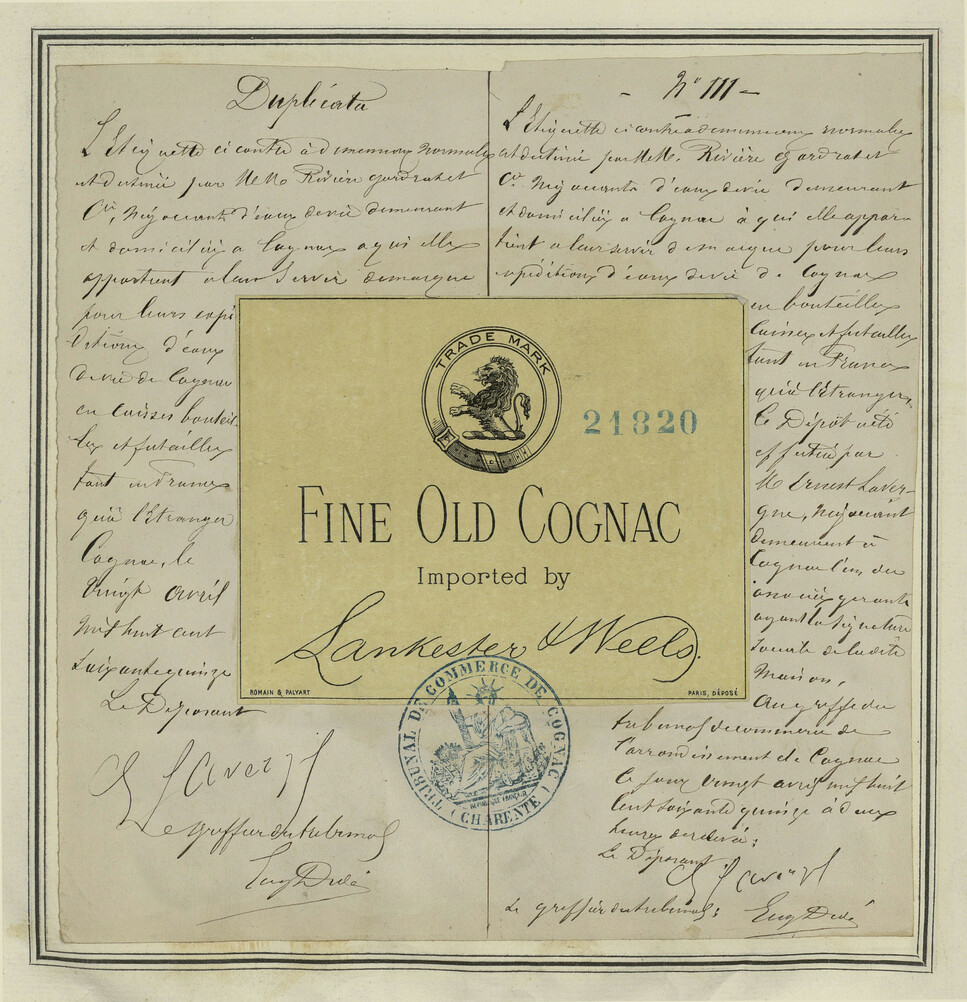 Duplicata
L'Etiquette ci contre à dimensions normales
est destinée par MM. Rivière gardrat et
Cie, Négociants d'eaux de vie demeurant
et domiciliés a Cognac a qui elle
appartient a leur servir de marque
pour leurs expé
ditions d'eaux
de vie de Cognac
en caisses bouteil
les et futailles
tant en France
qu'à l'étranger
Cognac, le
Vingt avril
mil huit cent
soixante quinze
Le Déposant
E Lavergne
Le greffier du tribunal
Eug Dedé
- No 111 -
L'Etiquette ci contre à dimensions normales
est destinée par MM. Rivière gardrat et
Ce Négociants d'eaux de vie demeurant
et domiciliés a Cognac à qui elle appar-
tient a leur servir de marque pour leurs
expéditions d'eaux de vie de Cognac
en bouteilles
caisses et futailles
tant en France
qu'à l'étranger.
Le Dépôt a été
effectué par
M Ernest Laver-
gne, Négociant
demeurant à
Cognac l'un des
associés gérants
ayant la signature
sociale de la dite
Maison,
Au greffe du
tribunal de commerce de
l'arrondissement de Cognac
Ce jour vingt avril mil huit
cent soixante quinze à deux
heures de relevée;
Le Déposant
E Lavergne
Le greffier du tribunal:
Eug Dedé
TRADE MARK
21820
FINE OLD COGNAC
Imported by
Lankester & Wells.
ROMAIN & PALYART
PARIS, DÉPOSÉ
TRIBUNAL DE COMMERCE DE COGNAC
(CHARENTE)